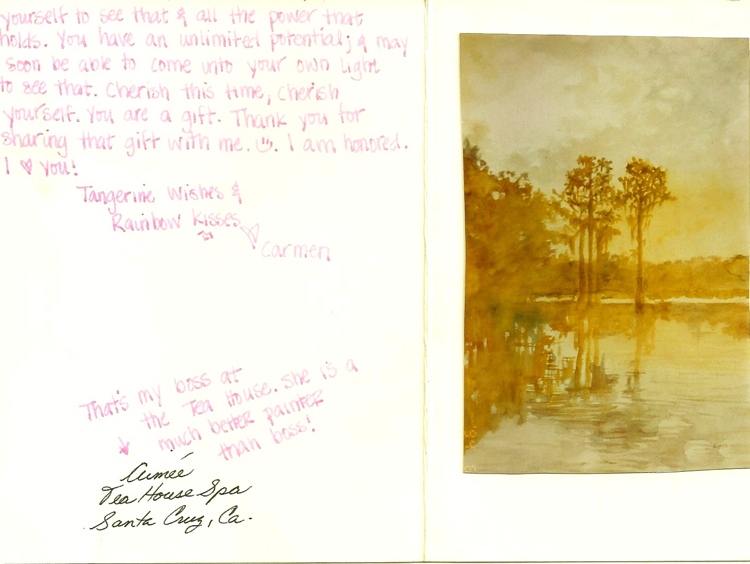 yourself to see that & all the power that
holds. You have an unlimited potential; & may
soon be able to come into your own light
to see that. Cherish this time, cherish
yourself. You are a gift. Thank you for
sharing that gift with me. I am honored.
I ♡ you!
Tangerine Wishes &
Rainbow Kisses
Carmen
That's my boss at
the Tea House. She is a
much better painter
than boss!
Aumeé
Tea House Spa
Santa Cruz, Ca.